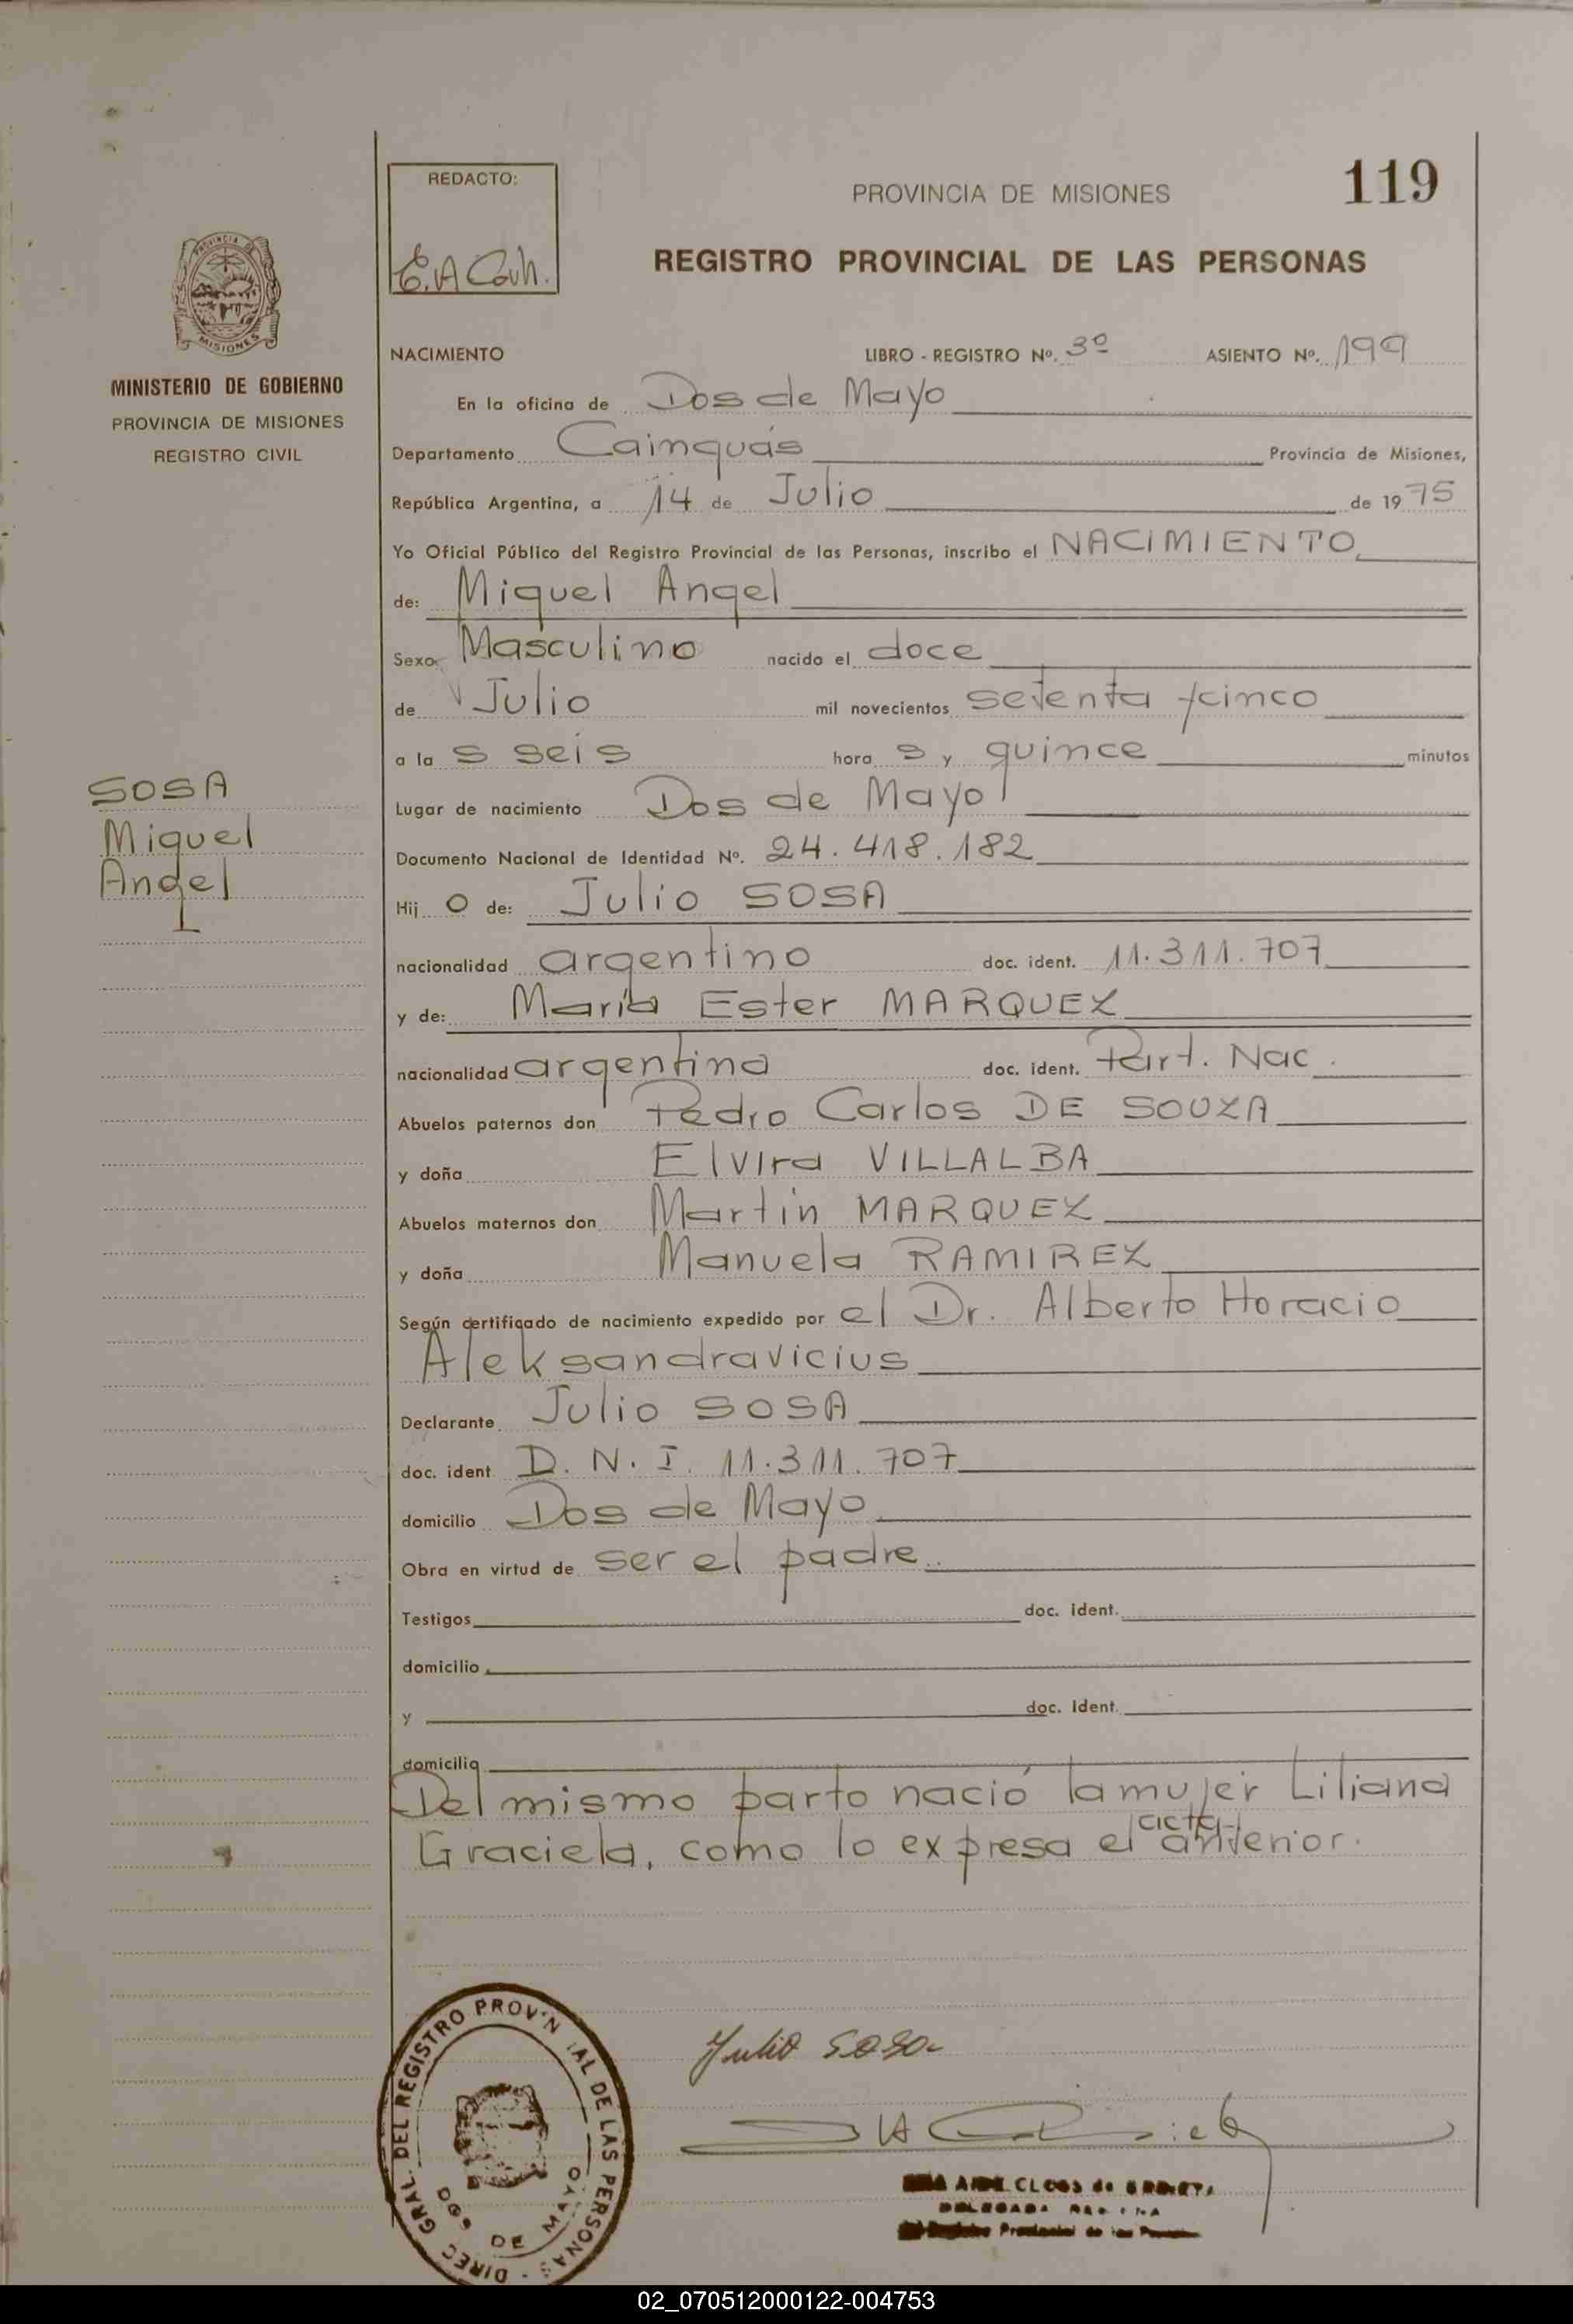 REDACTO:
E.A Cauh.
PROVINCIA DE MISIONES
119
REGISTRO PROVINCIAL DE LAS PERSONAS
PROVINCIA DE
MISIONES
MINISTERIO DE GOBIERNO
PROVINCIA DE MISIONES
REGISTRO CIVIL
NACIMIENTO LIBRO - REGISTRO Nº. 3º ASIENTO Nº. 199
En la oficina de Dos de Mayo
Departamento Cainguás Provincia de Misiones,
República Argentina, a 14 de Julio de 1975
Yo Oficial Público del Registro Provincial de las Personas, inscribo el NACIMIENTO
de: Miguel Angel
Sexo Masculino nacido el doce
de Julio mil novecientos setenta y cinco
a la s seis hora s y quince minutos
Lugar de nacimiento Dos de Mayo
Documento Nacional de Identidad Nº. 24.418.182
Hij o de: Julio SOSA
nacionalidad argentino doc. ident. 11.311.707
y de: María Ester MARQUEZ
nacionalidad argentina doc. ident. Part. Nac.
Abuelos paternos don Pedro Carlos DE SOUZA
y doña Elvira VILLALBA
Abuelos maternos don Martin MARQUEZ
y doña Manuela RAMIREZ
Según certificado de nacimiento expedido por el Dr. Alberto Horacio
Aleksandravicius
Declarante Julio SOSA
doc. ident D.N.I. 11.311.707
domicilio Dos de Mayo
Obra en virtud de ser el padre.
Testigos doc. ident.
domicilio
y doc. Ident.
domicilio
Del mismo parto nació la mujer Liliana
Graciela, como lo expresa el acta anterior.
SOSA
Miguel
Angel
Julio Sosa
DIREC. GRAL. DEL REGISTRO PROVIN IAL DE LAS PERSONAS
DOS DE MAYO
CLOSS de
DELEGADA
Registro Provincial de las Personas
02_070512000122-004753